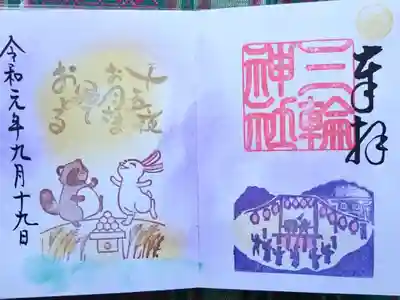 奉拝
三輪
神社
十五夜
お月さま
見て
おどる
令和元年九月十九日